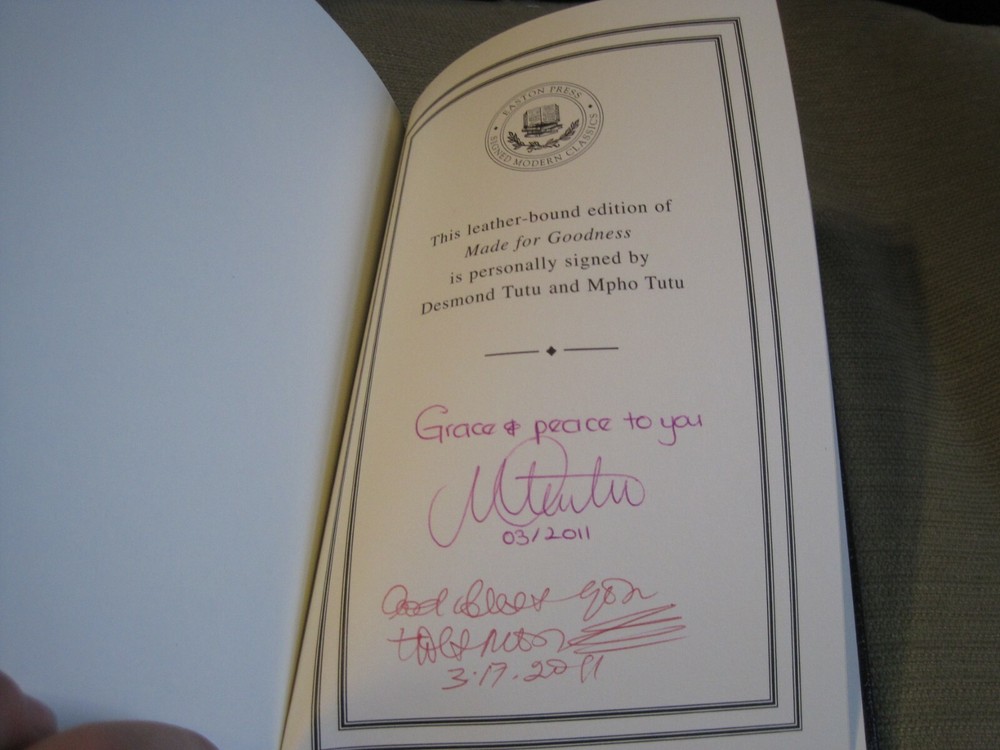 EASTON PRESS
SIGNED MODERN CLASSICS
This leather-bound edition of
Made for Goodness
is personally signed by
Desmond Tutu and Mpho Tutu
Grace & peace to you
03/2011
God bless you
3·17·2011